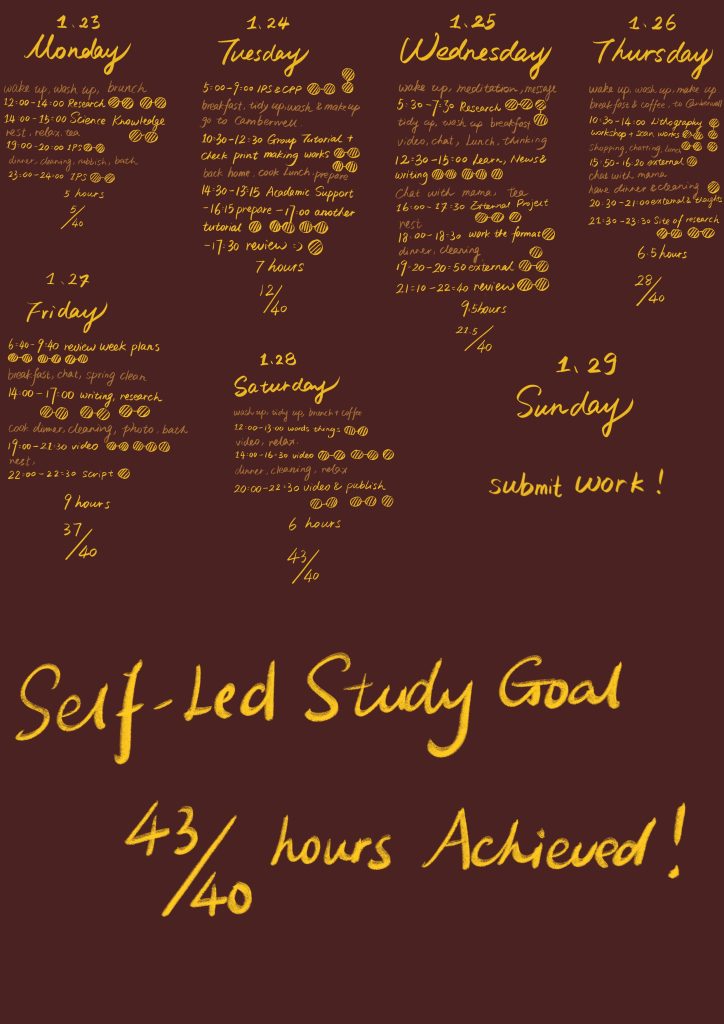 1.23
Monday
wake up, wash up, brunch
12:00-14:00 Research
14:00-15:00 Science Knowledge
rest, relax, tea
19:00-20:00 IPS
dinner, cleaning, rubbish, bath
23:00-24:00 IPS
5 hours
5/40
1.24
Tuesday
5:00-9:00 IPS & CPP
breakfast, tidy up, wash & make up
go to Camberwell
10:30-12:30 Group Tutorial +
check print making works
back home, cook lunch, prepare
14:30-15:15 Academic Support
-16:15 prepare -17:00 another
tutorial
-17:30 review :)
7 hours
12/40
1.25
Wednesday
wake up, meditation, message
5:30-7:30 Research
tidy up, wash up, breakfast
video, chat, lunch, thinking
12:30-15:00 Learn, News &
writing
chat with mama, tea
16:00-17:30 External Project
rest
18:00-18:30 work the format
dinner, cleaning
19:20-20:50 external
21:10-22:40 review
9.5 hours
21.5/40
1.26
Thursday
wake up, wash up, make up
breakfast & coffee, to Camberwell
10:30-14:00 Lithography
workshop + scan works
shopping, chatting, lunch
15:50-16:20 external
chat with mama
have dinner & cleaning
20:30-21:00 external &
21:30-23:30 Site of research
6.5 hours
28/40
1.27
Friday
6:40-9:40 review week plans
breakfast, chat, spring clean
14:00-17:00 writing, research
cook dinner, cleaning, photo, bath
19:00-21:30 video
rest,
22:00-22:30 script
9 hours
37/40
1.28
Saturday
wash up, tidy up, brunch + coffee
12:00-13:00 words things
video, relax.
14:00-16:30 video
dinner, cleaning, relax
20:00-22:30 video & publish
6 hours
43/40
1.29
Sunday
submit work!
Self-Led Study Goal
43/40 hours Achieved!